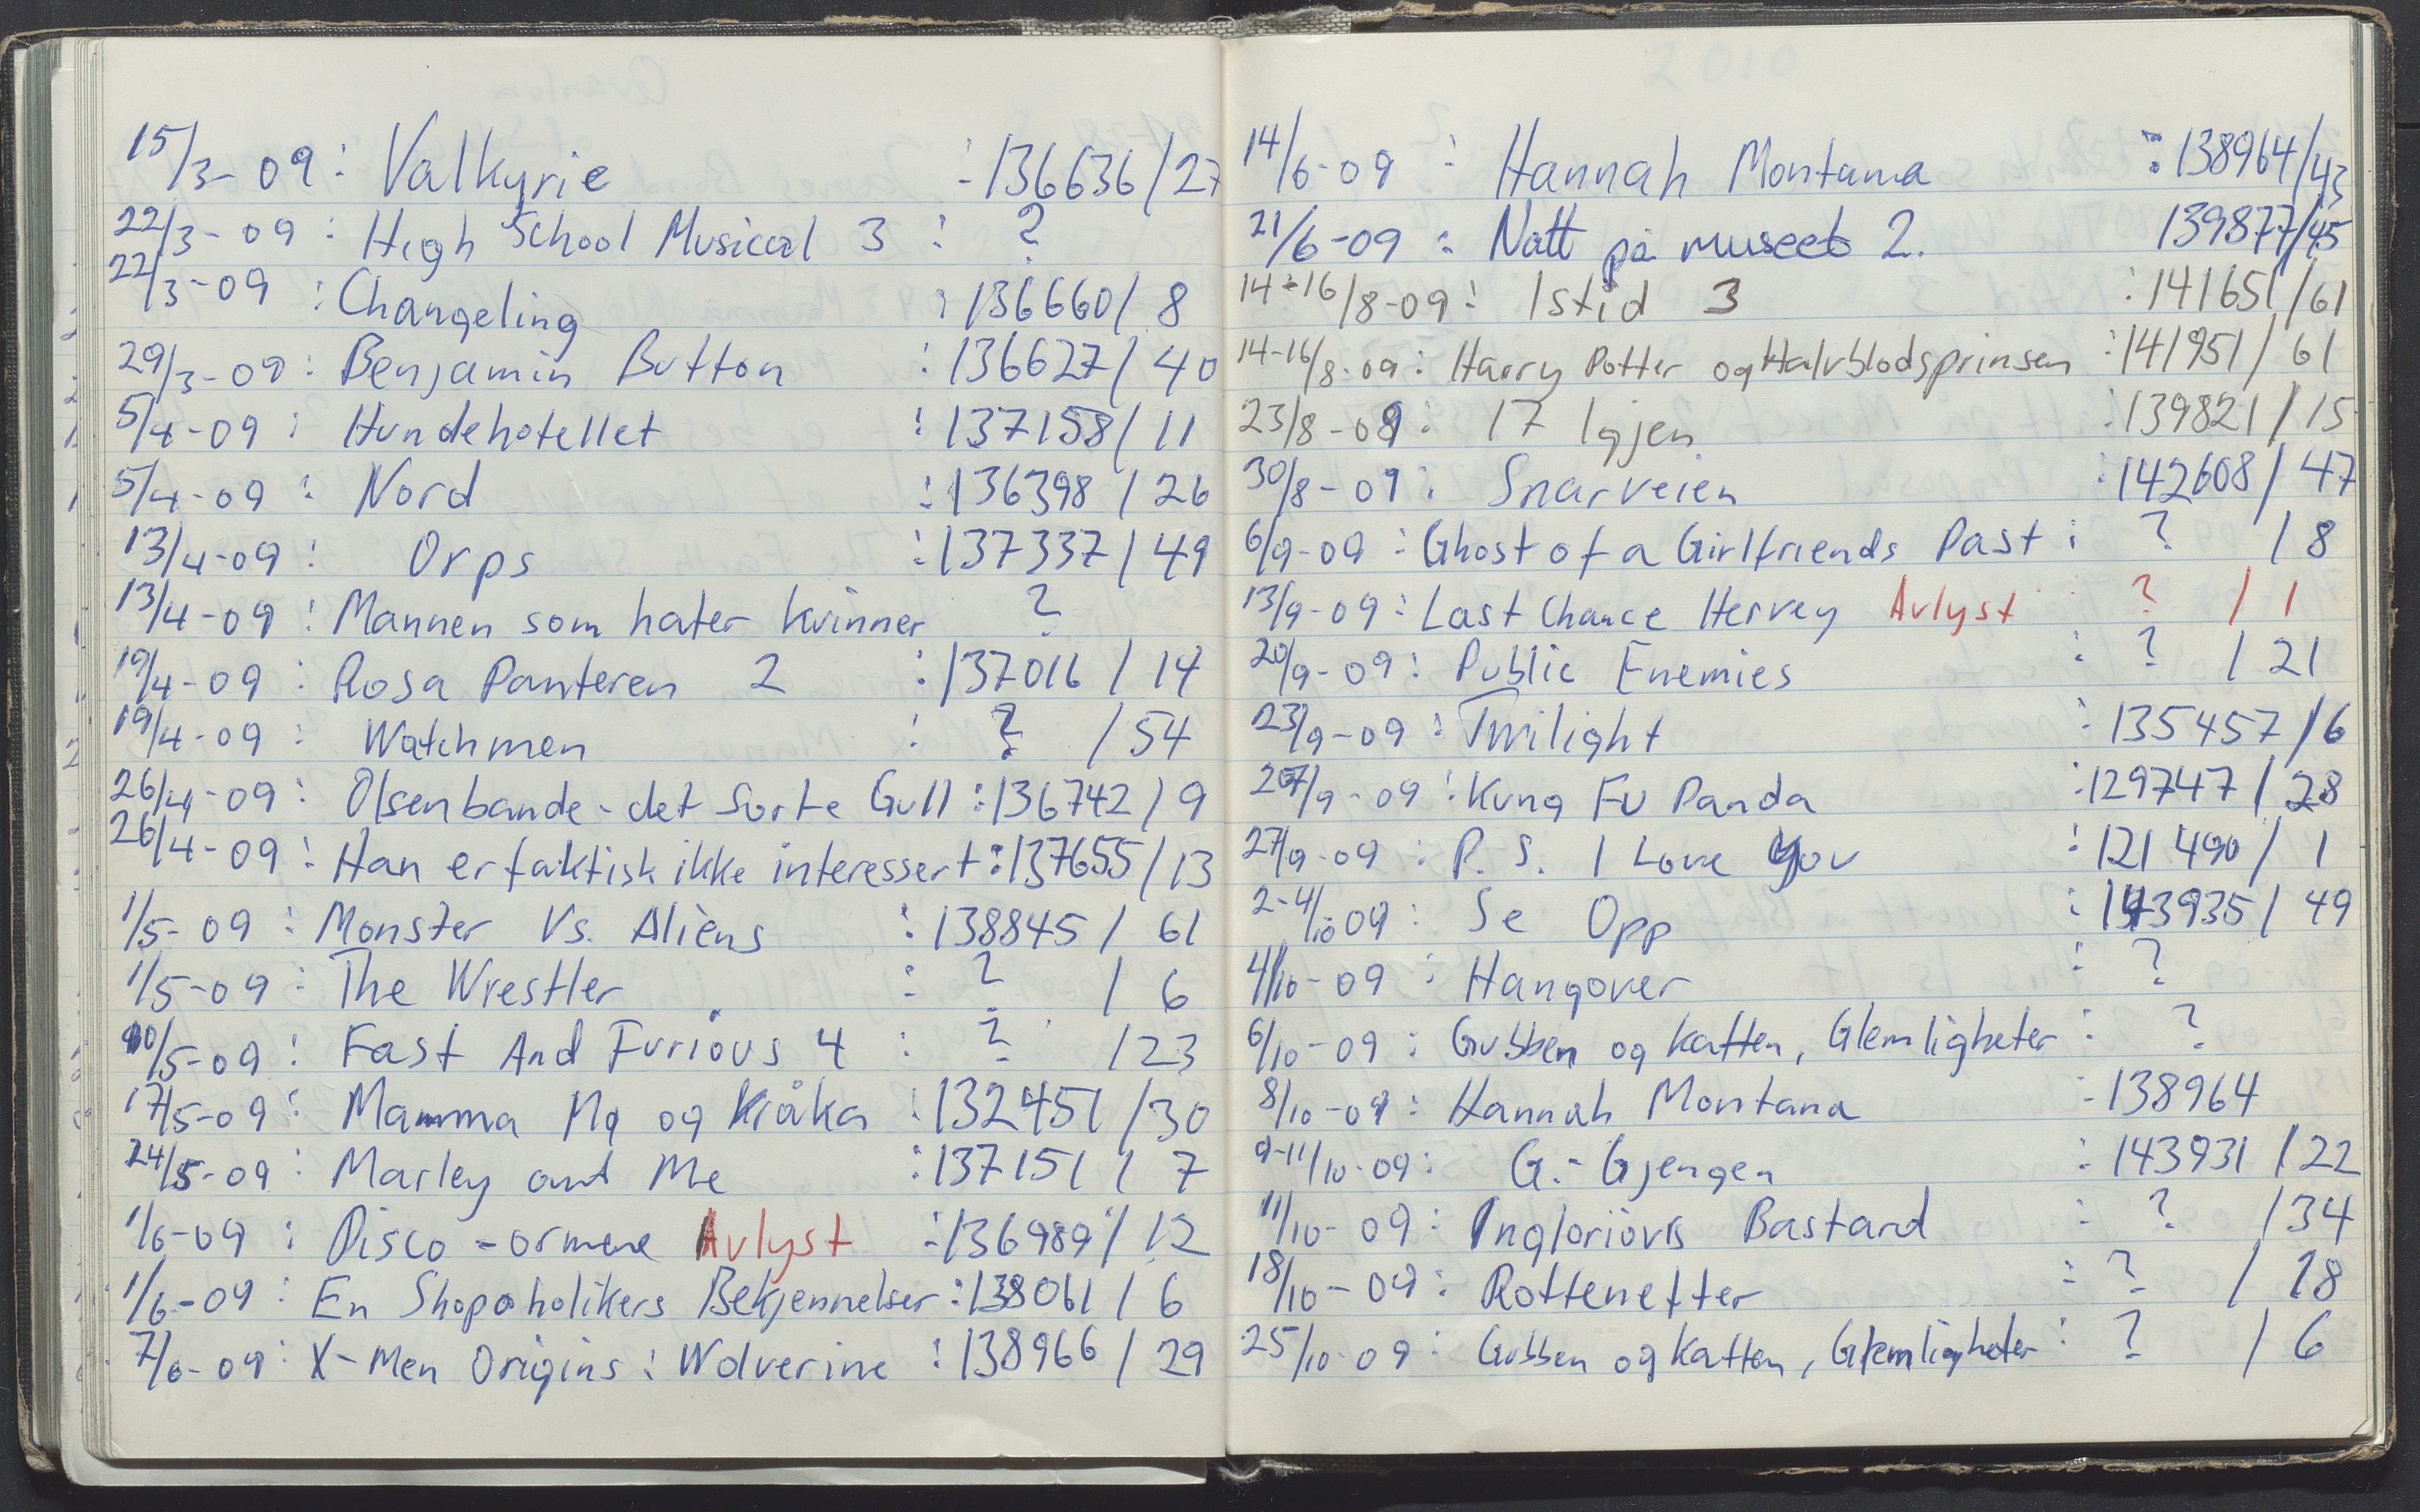 15/3-09: Valkyrie :136636/27
22/3-09: High School Musical 3 : ?
22/3-09: Changeling :136660/8
29/3-09: Benjamin Button :136627/40
5/4-09: Hundehotellet :137158/11
5/4-09: Nord :136398/26
13/4-09: Orps :137337/49
13/4-09: Mannen som hater kvinner ?
19/4-09: Rosa Panteren 2 :137016/14
19/4-09: Watchmen : ? /54
26/4-09: Olsenbande - det Sorte Gull :136742/9
26/4-09: Han er faktisk ikke interessert :137655/13
1/5-09: Monster Vs. Aliens :138845/61
1/5-09: The Wrestler : ? /6
10/5-09: Fast And Furious 4 : ? /23
17/5-09: Mamma Mø og Kråka :132451/30
24/5-09: Marley and Me :137151/7
1/6-09: Disco-ormene Avlyst :136989/12
1/6-09: En Shopoholikers Bekjennelser :138061/6
7/6-09: X-Men Origins: Wolverine :138966/29
14/6-09: Hannah Montana :138964/43
21/6-09: Natt på museet 2. 139877/45
14-16/8-09: Istid 3 :141651/61
14-16/8-09: Harry Potter og Halvblodsprinsen :141951/61
23/8-09: 17 Igjen :139821/15
30/8-09: Snarveien :142608/47
6/9-09: Ghost of a Girlfriends Past : ? /8
13/9-09: Last Chance Hervey Avlyst : ? /1
20/9-09: Public Enemies : ? /21
23/9-09: Twilight :135457/6
27/9-09: Kung Fu Panda :129747/28
27/9-09: P.S. I Love You :121490/1
2-4/10 09: Se Opp :143935/49
4/10-09: Hangover : ?
6/10-09: Gubben og katten, Glemligheter : ?
8/10-09: Hannah Montana :138964
9-11/10-09: G.-Gjengen :143931/22
11/10-09: Inglorious Bastard : ? /34
18/10-09: Rottenetter : ? /18
25/10-09: Gubben og Katten, Glemligheter : ? /6